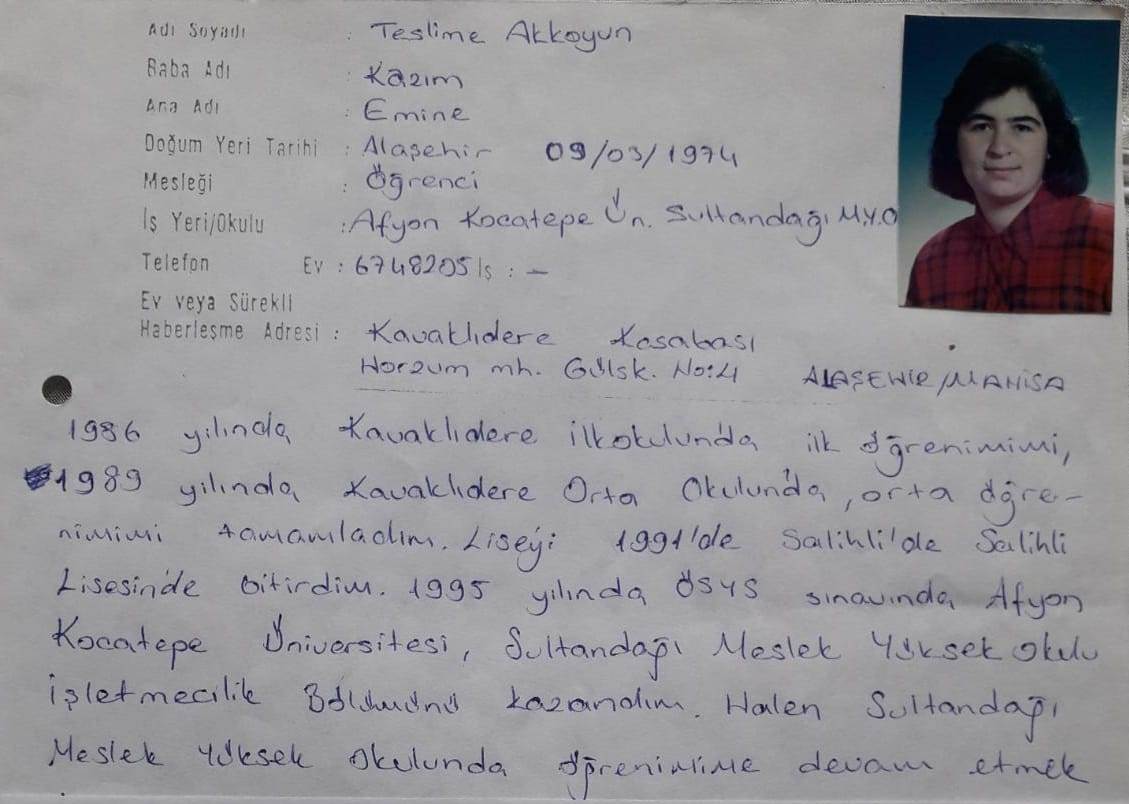 Adı Soyadı : Teslime Akkoyun
Baba Adı : Kazım
Ana Adı : Emine
Doğum Yeri Tarihi : Alaşehir 09/03/1974
Mesleği : Öğrenci
İş Yeri/Okulu : Afyon Kocatepe Ün. Sultandağı M.Y.O
Telefon Ev : 6748205 İş : —
Ev veya Sürekli
Haberleşme Adresi : Kavaklıdere Kasabası
Horzum mh. Gül sk. No:4 ALAŞEHİR/MANİSA
1986 yılında Kavaklıdere ilkokulunda ilk öğrenimimi,
1989 yılında Kavaklıdere Orta Okulunda, orta öğre-
nimimi tamamladım. Liseyi 1991'de Salihli'de Salihli
Lisesinde bitirdim. 1995 yılında ÖSYS sınavında Afyon
Kocatepe Üniversitesi, Sultandağı Meslek Yüksek okulu
işletmecilik Bölümünü kazandım. Halen Sultandağı
Meslek Yüksek Okulunda öğrenimime devam etmek